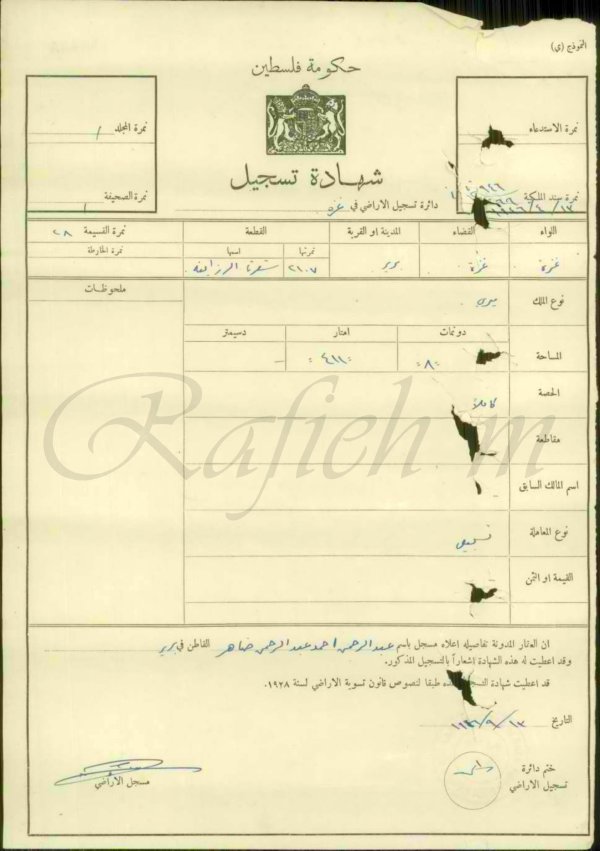 النموذج (ي)
حكومة فلسطين
شهادة تسجيل
دائرة تسجيل الاراضي في غزه
نمرة المجلد ١
نمرة الصحيفة ١
نمرة الاستدعاء
نمرة سند الملكية
اللواء
القضاء
المدينة او القرية
القطعة
نمرتها
اسمها
نمرة القسيمة ٢٨
نمرة الخارطة
غزة
غزة
برير
٢١٠٧
نوع الملك
ميري
ملحوظات
المساحة
دونمات
امتار
دسيمتر
"٨"
"٤١١"
الحصة
كاملاً
مقاطعة
اسم المالك السابق
نوع المعاملة
القيمة او الثمن
ان العقار المدونة تفاصيله اعلاه مسجل باسم عبد الرحمن احمد عبد الرحمن ضاهر القاطن في برير
وقد اعطيت له هذه الشهادة اشعاراً بالتسجيل المذكور.
قد اعطيت شهادة التسجيل هذه طبقا لنصوص قانون تسوية الاراضي لسنة ١٩٢٨.
التاريخ
ختم دائرة
تسجيل الاراضي
مسجل الاراضي
Rafieh m